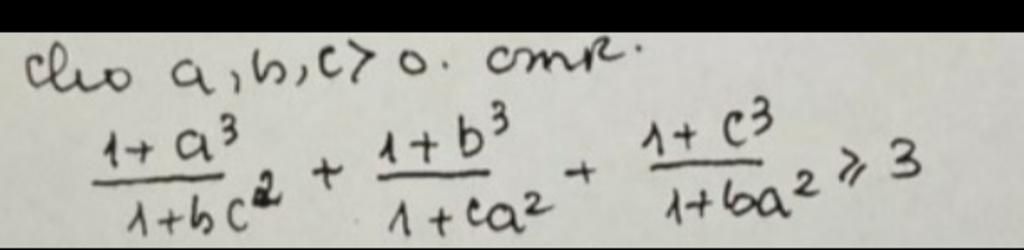 Cho a, b, c > 0. CMR.
(1 + a³)/(1 + bc²) + (1 + b³)/(1 + ca²) + (1 + c³)/(1 + ba²) ≥ 3